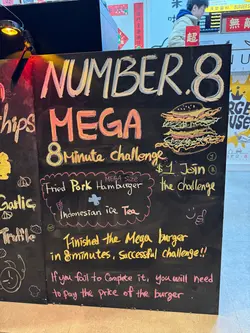 NUMBER.8
MEGA
8 minute challenge
$1 Join
the challenge
Fried Pork Hamburger
+
Indonesian ice Tea
Finished the Mega burger
in 8 minutes, successful challenge!!
If you fail to complete it, you will need
to pay the price of the burger
hips
Garlic,
Truffle
超
無敵